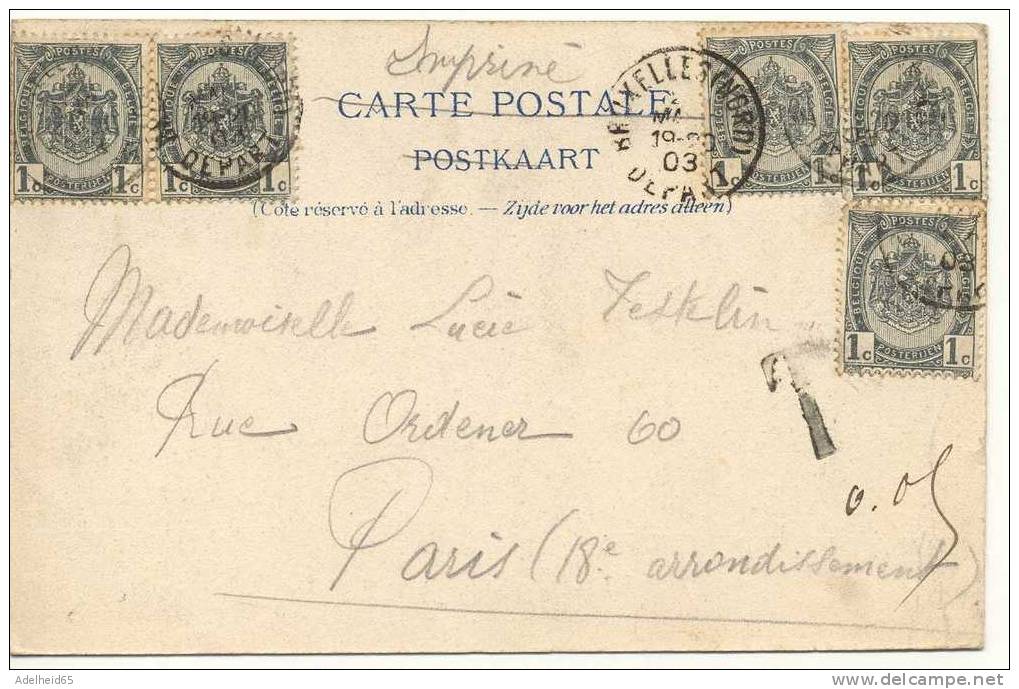 Imprimé
CARTE POSTALE
POSTKAART
(Côté réservé à l'adresse. — Zijde voor het adres alleen)
POSTES
BELGIQUE
BELGIË
POSTERIJEN
1c 1c
POSTES
BELGIQUE
BELGIË
POSTERIJEN
1c 1c
DEPART
BRUXELLES (NORD)
19-20
03
DEPART
POSTES
BELGIQUE
BELGIË
POSTERIJEN
1c 1c
POSTES
BELGIQUE
BELGIË
POSTERIJEN
1c 1c
POSTES
BELGIQUE
BELGIË
POSTERIJEN
1c 1c
Mademoiselle Lucie
Rue Ordener 60
Paris (18e. arrondissement)
T
0.05
Adelheid65
delcampe.net